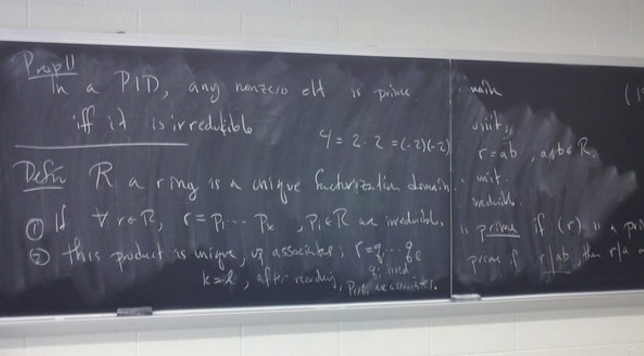 Prop 11
In a PID, any nonzero elt is prime
iff it is irreducible
4 = 2 · 2 = (-2)(-2)
Defn R a ring is a unique factorization domain
① If ∀ r∈R, r = p₁ ⋯ pₖ , pᵢ∈R are irreducible.
② this product is unique, up associates; r = q₁ ⋯ qₗ
qᵢ irred.
k=l, after reordering, are associates.
unit,
r = ab , a,b ∈ R,
unit.
irreducible.
is prime if (r) is a
prime if r|ab, then r|a